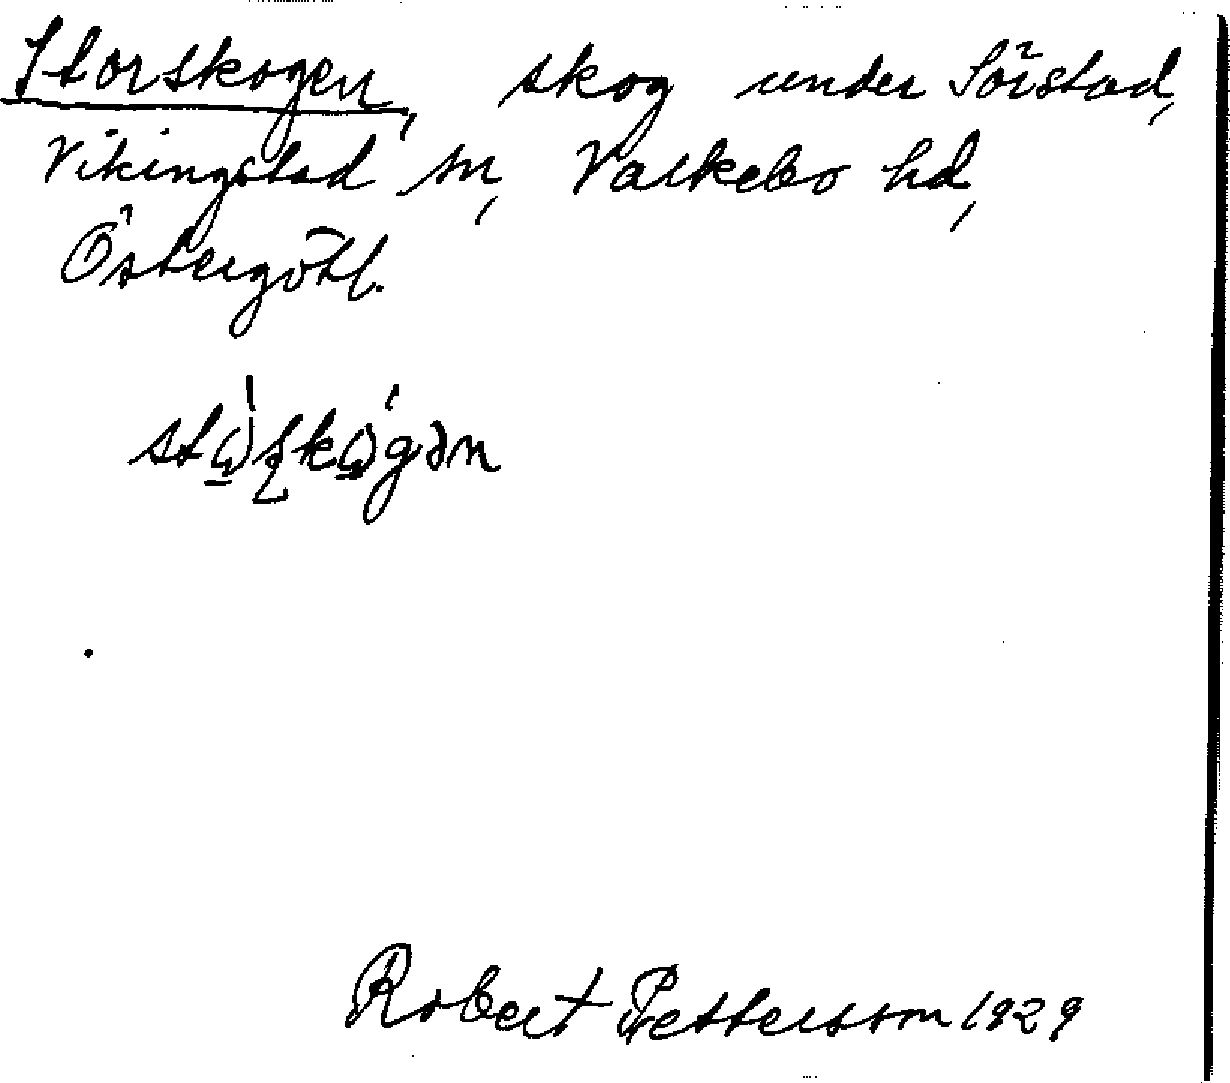 Storskogen, skog under Sörstad,
Vikingstad sn, Valkebo hd,
Östergötl.
Robert Pettersson 1929